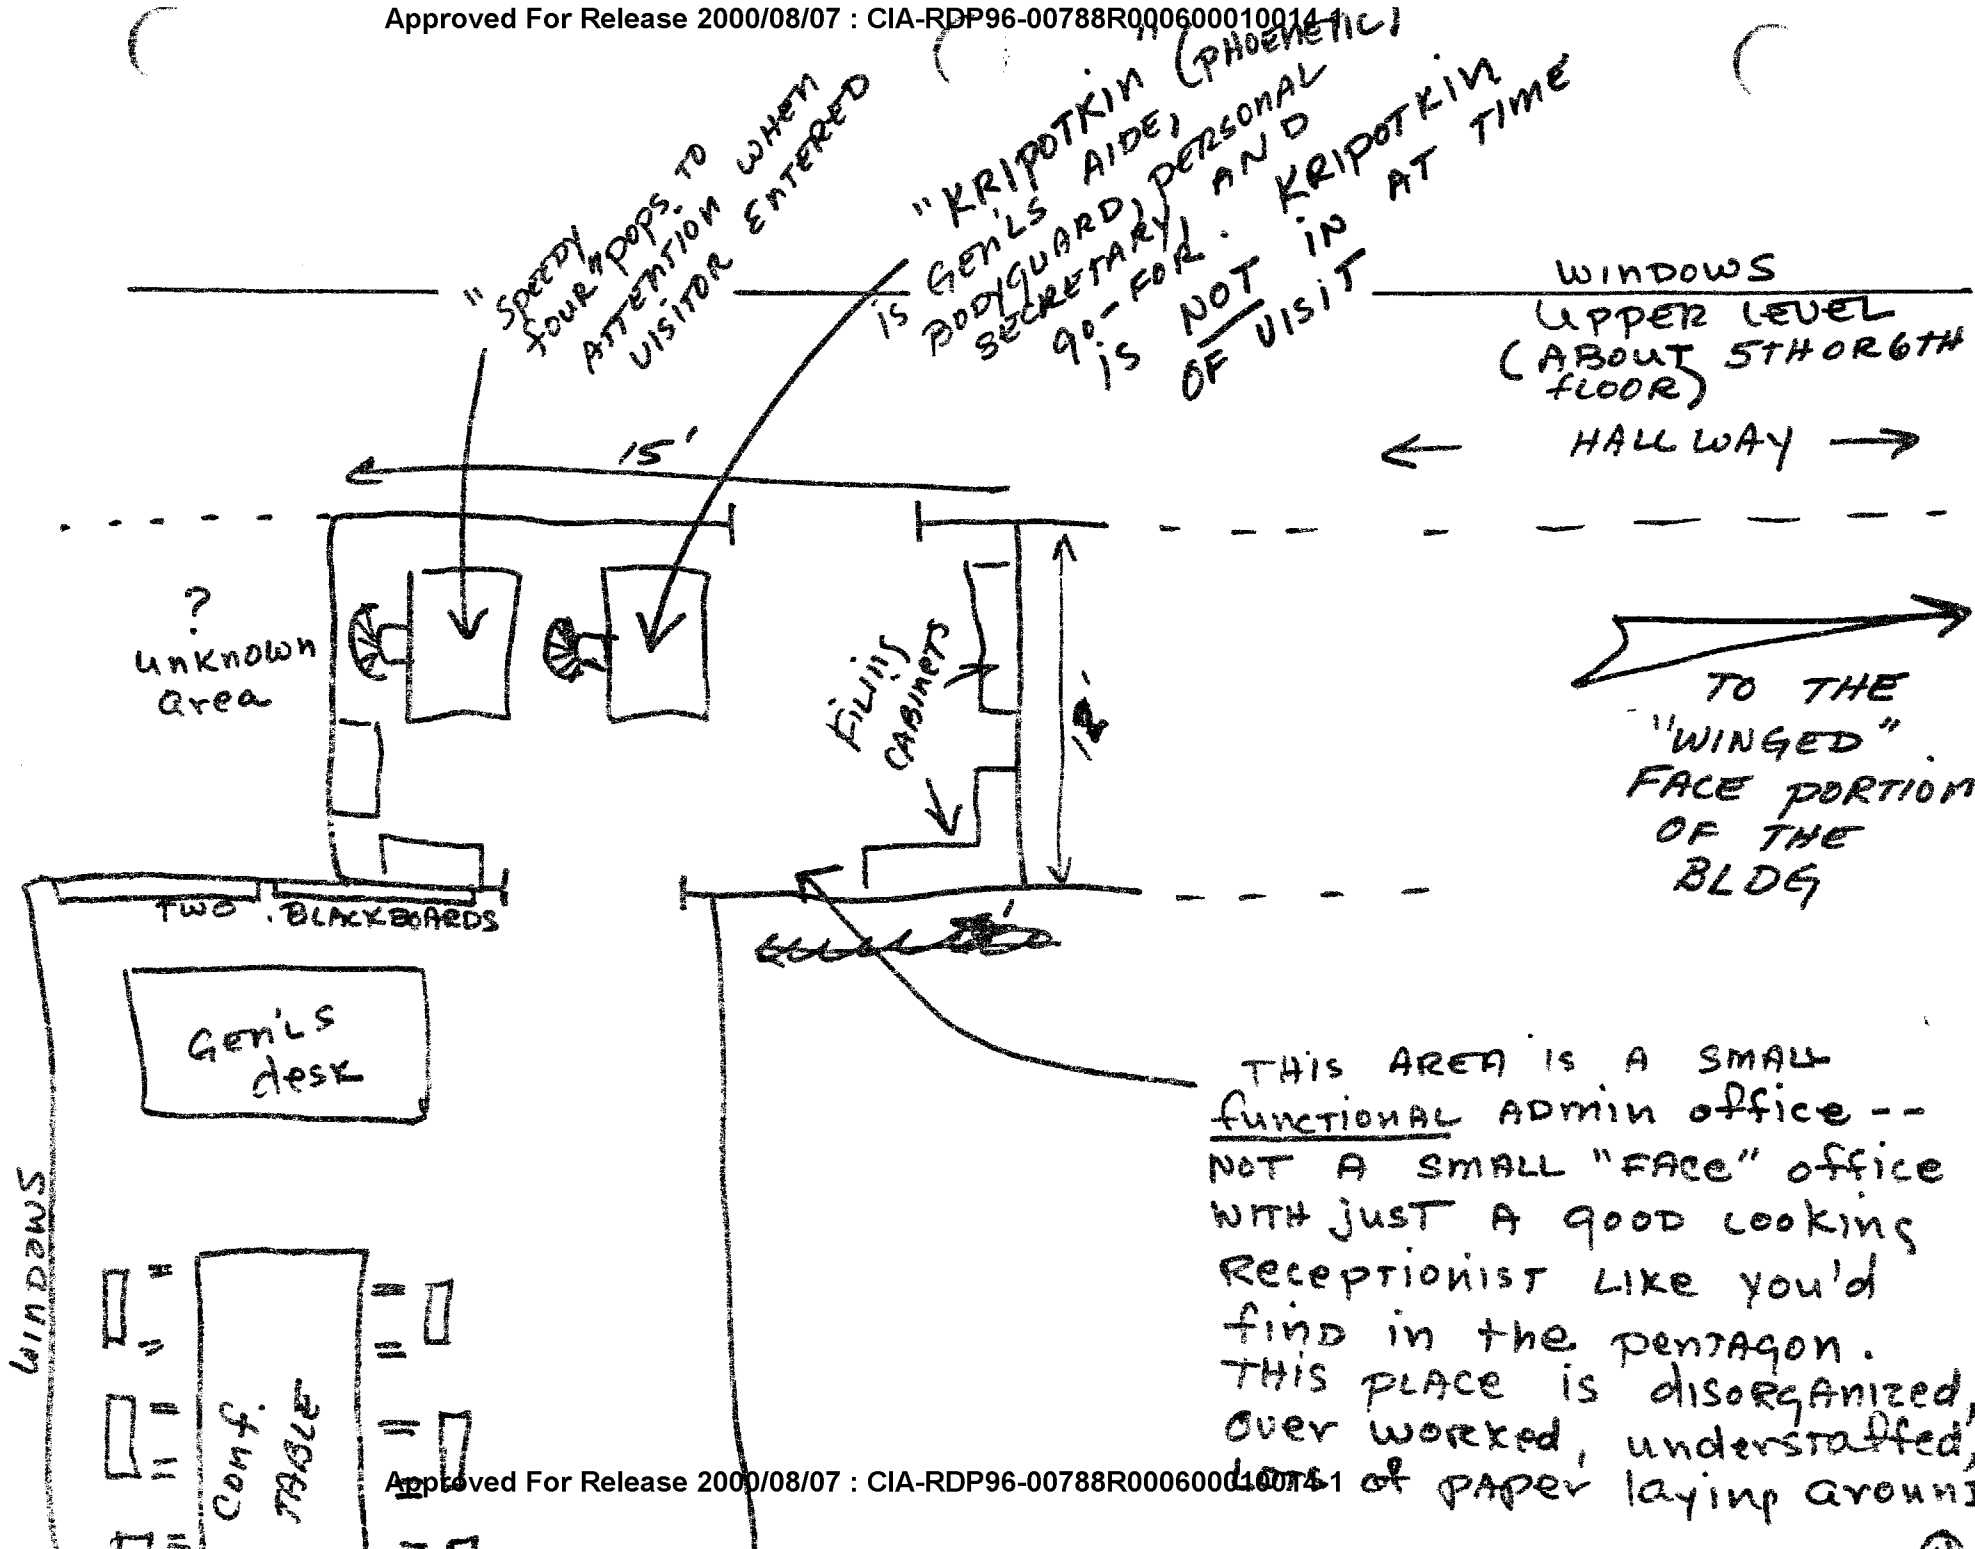 Approved For Release 2000/08/07 : CIA-RDP96-00788R000600010014-1
"SPEEDY
FOUR" POPS TO
ATTENTION WHEN
VISITOR ENTERED
"KRIPOTKIN" (PHOENETIC)
is GEN'LS AIDE,
BODYGUARD, PERSONAL
SECRETARY, AND
GO-FOR. KRIPOTKIN
is NOT IN AT TIME
OF VISIT
WINDOWS
UPPER LEVEL
(ABOUT 5TH OR 6TH
FLOOR)
HALLWAY
15'
?
unknown
area
FILING
CABINETS
TO THE
"WINGED"
FACE PORTION
OF THE
BLDG
TWO BLACKBOARDS
GEN'LS
desk
WINDOWS
Conf.
TABLE
THIS AREA is A SMALL
functional ADMIN office --
NOT A SMALL "FACE" office
WITH just A GOOD LOOKING
RECEPTIONIST LIKE you'd
find in the PENTAGON.
THIS PLACE is disorganized,
over worked, understaffed,
LOTS of PAPER laying around
Approved For Release 2000/08/07 : CIA-RDP96-00788R000600010014-1